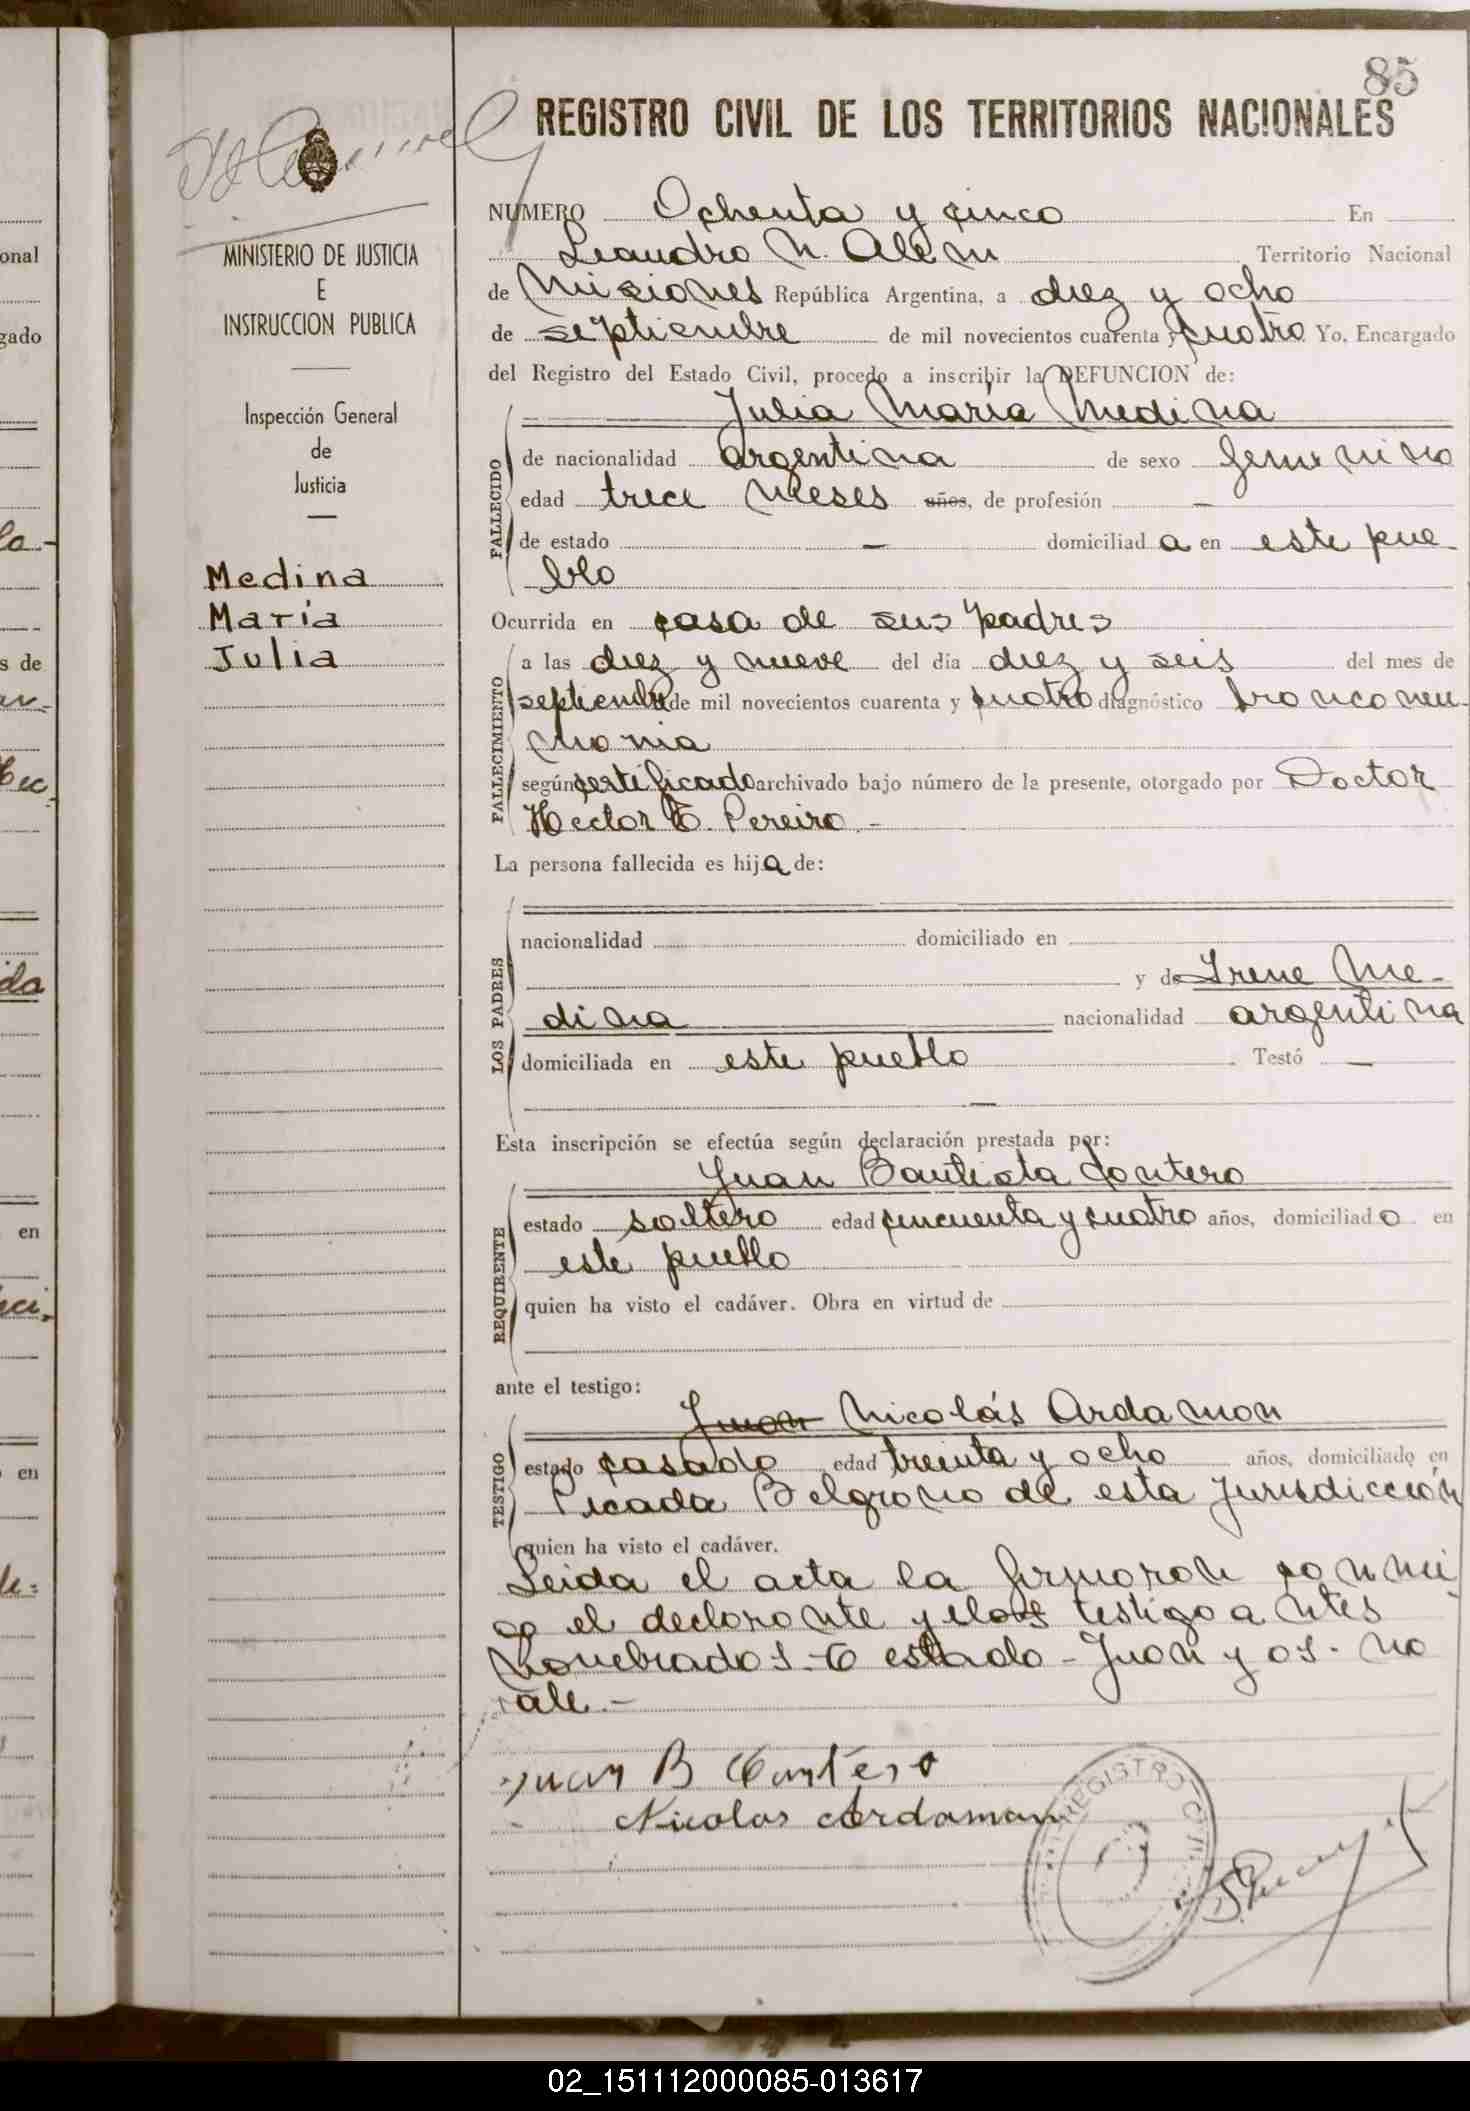 85
REGISTRO CIVIL DE LOS TERRITORIOS NACIONALES
MINISTERIO DE JUSTICIA
E
INSTRUCCION PUBLICA
Inspección General
de
Justicia
Medina
María
Julia
NUMERO Ochenta y cinco En
Leandro N. Alem Territorio Nacional
de Misiones República Argentina, a diez y ocho
de septiembre de mil novecientos cuarenta y cuatro Yo, Encargado
del Registro del Estado Civil, procedo a inscribir la DEFUNCION de:
Julia María Medina
FALLECIDO
de nacionalidad argentina de sexo femenino
edad trece meses años, de profesión —
de estado — domiciliad a en este pue-
blo
Ocurrida en casa de sus padres
FALLECIMIENTO
a las diez y nueve del día diez y seis del mes de
septiembre de mil novecientos cuarenta y cuatro diagnóstico bronconeu-
monia
según certificado archivado bajo número de la presente, otorgado por Doctor
Hector E. Pereiro.-
La persona fallecida es hija de:
LOS PADRES
nacionalidad domiciliado en
y de Irene Me-
dina nacionalidad argentina
domiciliada en este pueblo Testó —
—
Esta inscripción se efectúa según declaración prestada por:
Juan Bautista Contero
REQUIRENTE
estado soltero edad cincuenta y cuatro años, domiciliado en
este pueblo
quien ha visto el cadáver. Obra en virtud de
ante el testigo:
Juan Nicolás Ardamon
TESTIGO
estado casado edad treinta y ocho años, domiciliado en
Picada Belgrano de esta Jurisdicción
quien ha visto el cadáver.
Leida el acta la firmaron conmi
go el declarante y el testigo antes
nombrados.- estado - Juan y os. no
vale.-
Juan B Contero
Nicolas Ardaman
REGISTRO CIVIL
02_151112000085-013617